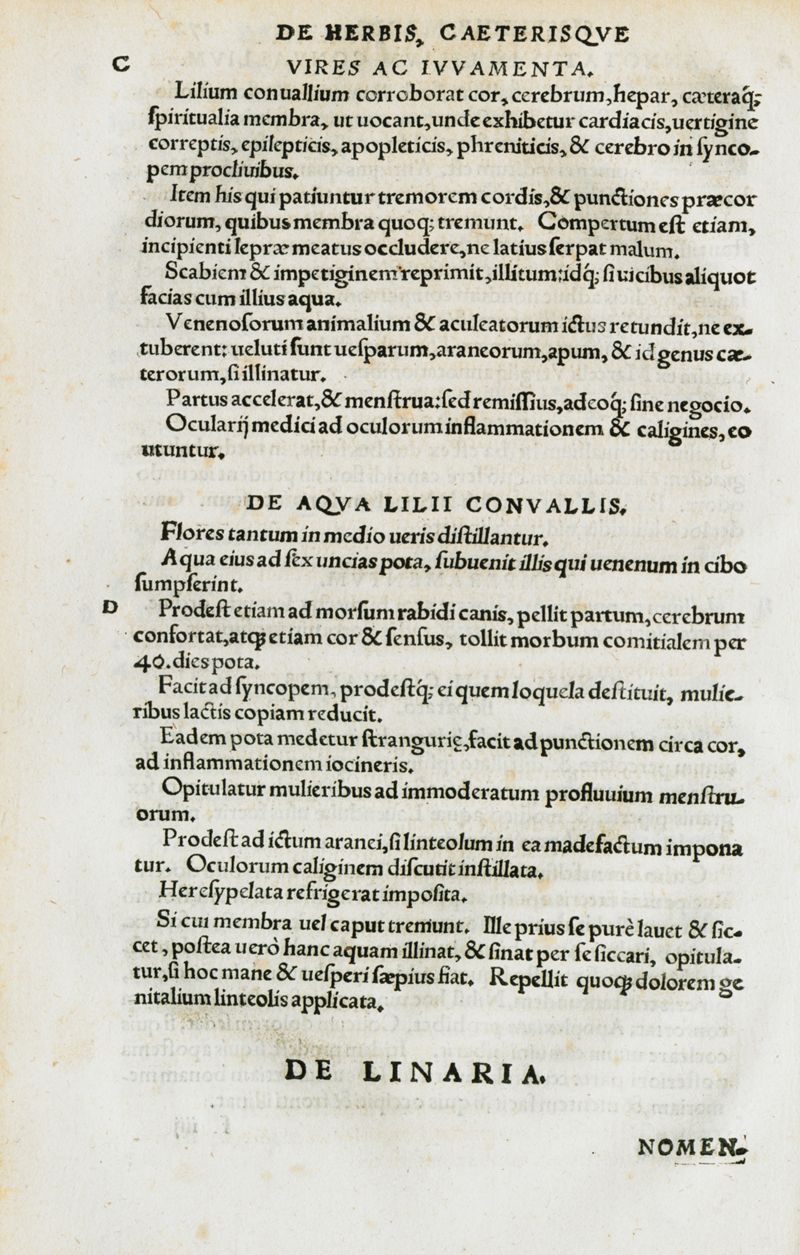 DE HERBIS, CAETERISQVE
C
VIRES AC IVVAMENTA.
Lilium conuallium corroborat cor, cerebrum, hepar, cæteraq́;
ſpiritualia membra, ut uocant, unde exhibetur cardiacis, uertigine
correptis, epilepticis, apopleticis, phreniticis, & cerebro in ſynco-
pem procliuibus.
Item his qui patiuntur tremorem cordis, & punctiones præcor
diorum, quibus membra quoq; tremunt. Compertum eſt etiam,
incipienti lepræ meatus occludere, ne latius ſerpat malum.
Scabiem & impetiginem reprimit, illitum: idq́; ſi uicibus aliquot
facias cum illius aqua.
Venenoſorum animalium & aculeatorum ictus retundit, ne ex-
tuberent: ueluti ſunt ueſparum, araneorum, apum, & id genus cæ-
terorum, ſi illinatur.
Partus accelerat, & menſtrua: ſed remiſſius, adeoq́; ſine negocio.
Ocularij medici ad oculorum inflammationem & caligines, eo
utuntur.
DE AQVA LILII CONVALLIS.
Flores tantum in medio ueris diſtillantur.
Aqua eius ad ſex uncias pota, ſubuenit illis qui uenenum in cibo
ſumpſerint.
D
Prodeſt etiam ad morſum rabidi canis, pellit partum, cerebrum
confortat, atq; etiam cor & ſenſus, tollit morbum comitialem per
40. dies pota.
Facit ad ſyncopem, prodeſtq́; ei quem loquela deſtituit, mulie-
ribus lactis copiam reducit.
Eadem pota medetur ſtrangurię, facit ad punctionem circa cor,
ad inflammationem iocineris.
Opitulatur mulieribus ad immoderatum profluuium menſtru-
orum.
Prodeſt ad ictum aranei, ſi linteolum in ea madefactum impona
tur. Oculorum caliginem diſcutit inſtillata.
Hereſypelata refrigerat impoſita.
Si cui membra uel caput tremunt. Ille prius ſe purè lauet & ſic-
cet, poſtea uerò hanc aquam illinat, & ſinat per ſe ſiccari, opitula-
tur, ſi hoc mane & ueſperi ſæpius fiat. Repellit quoq; dolorem ge
nitalium linteolis applicata.
DE LINARIA.
NOMEN-